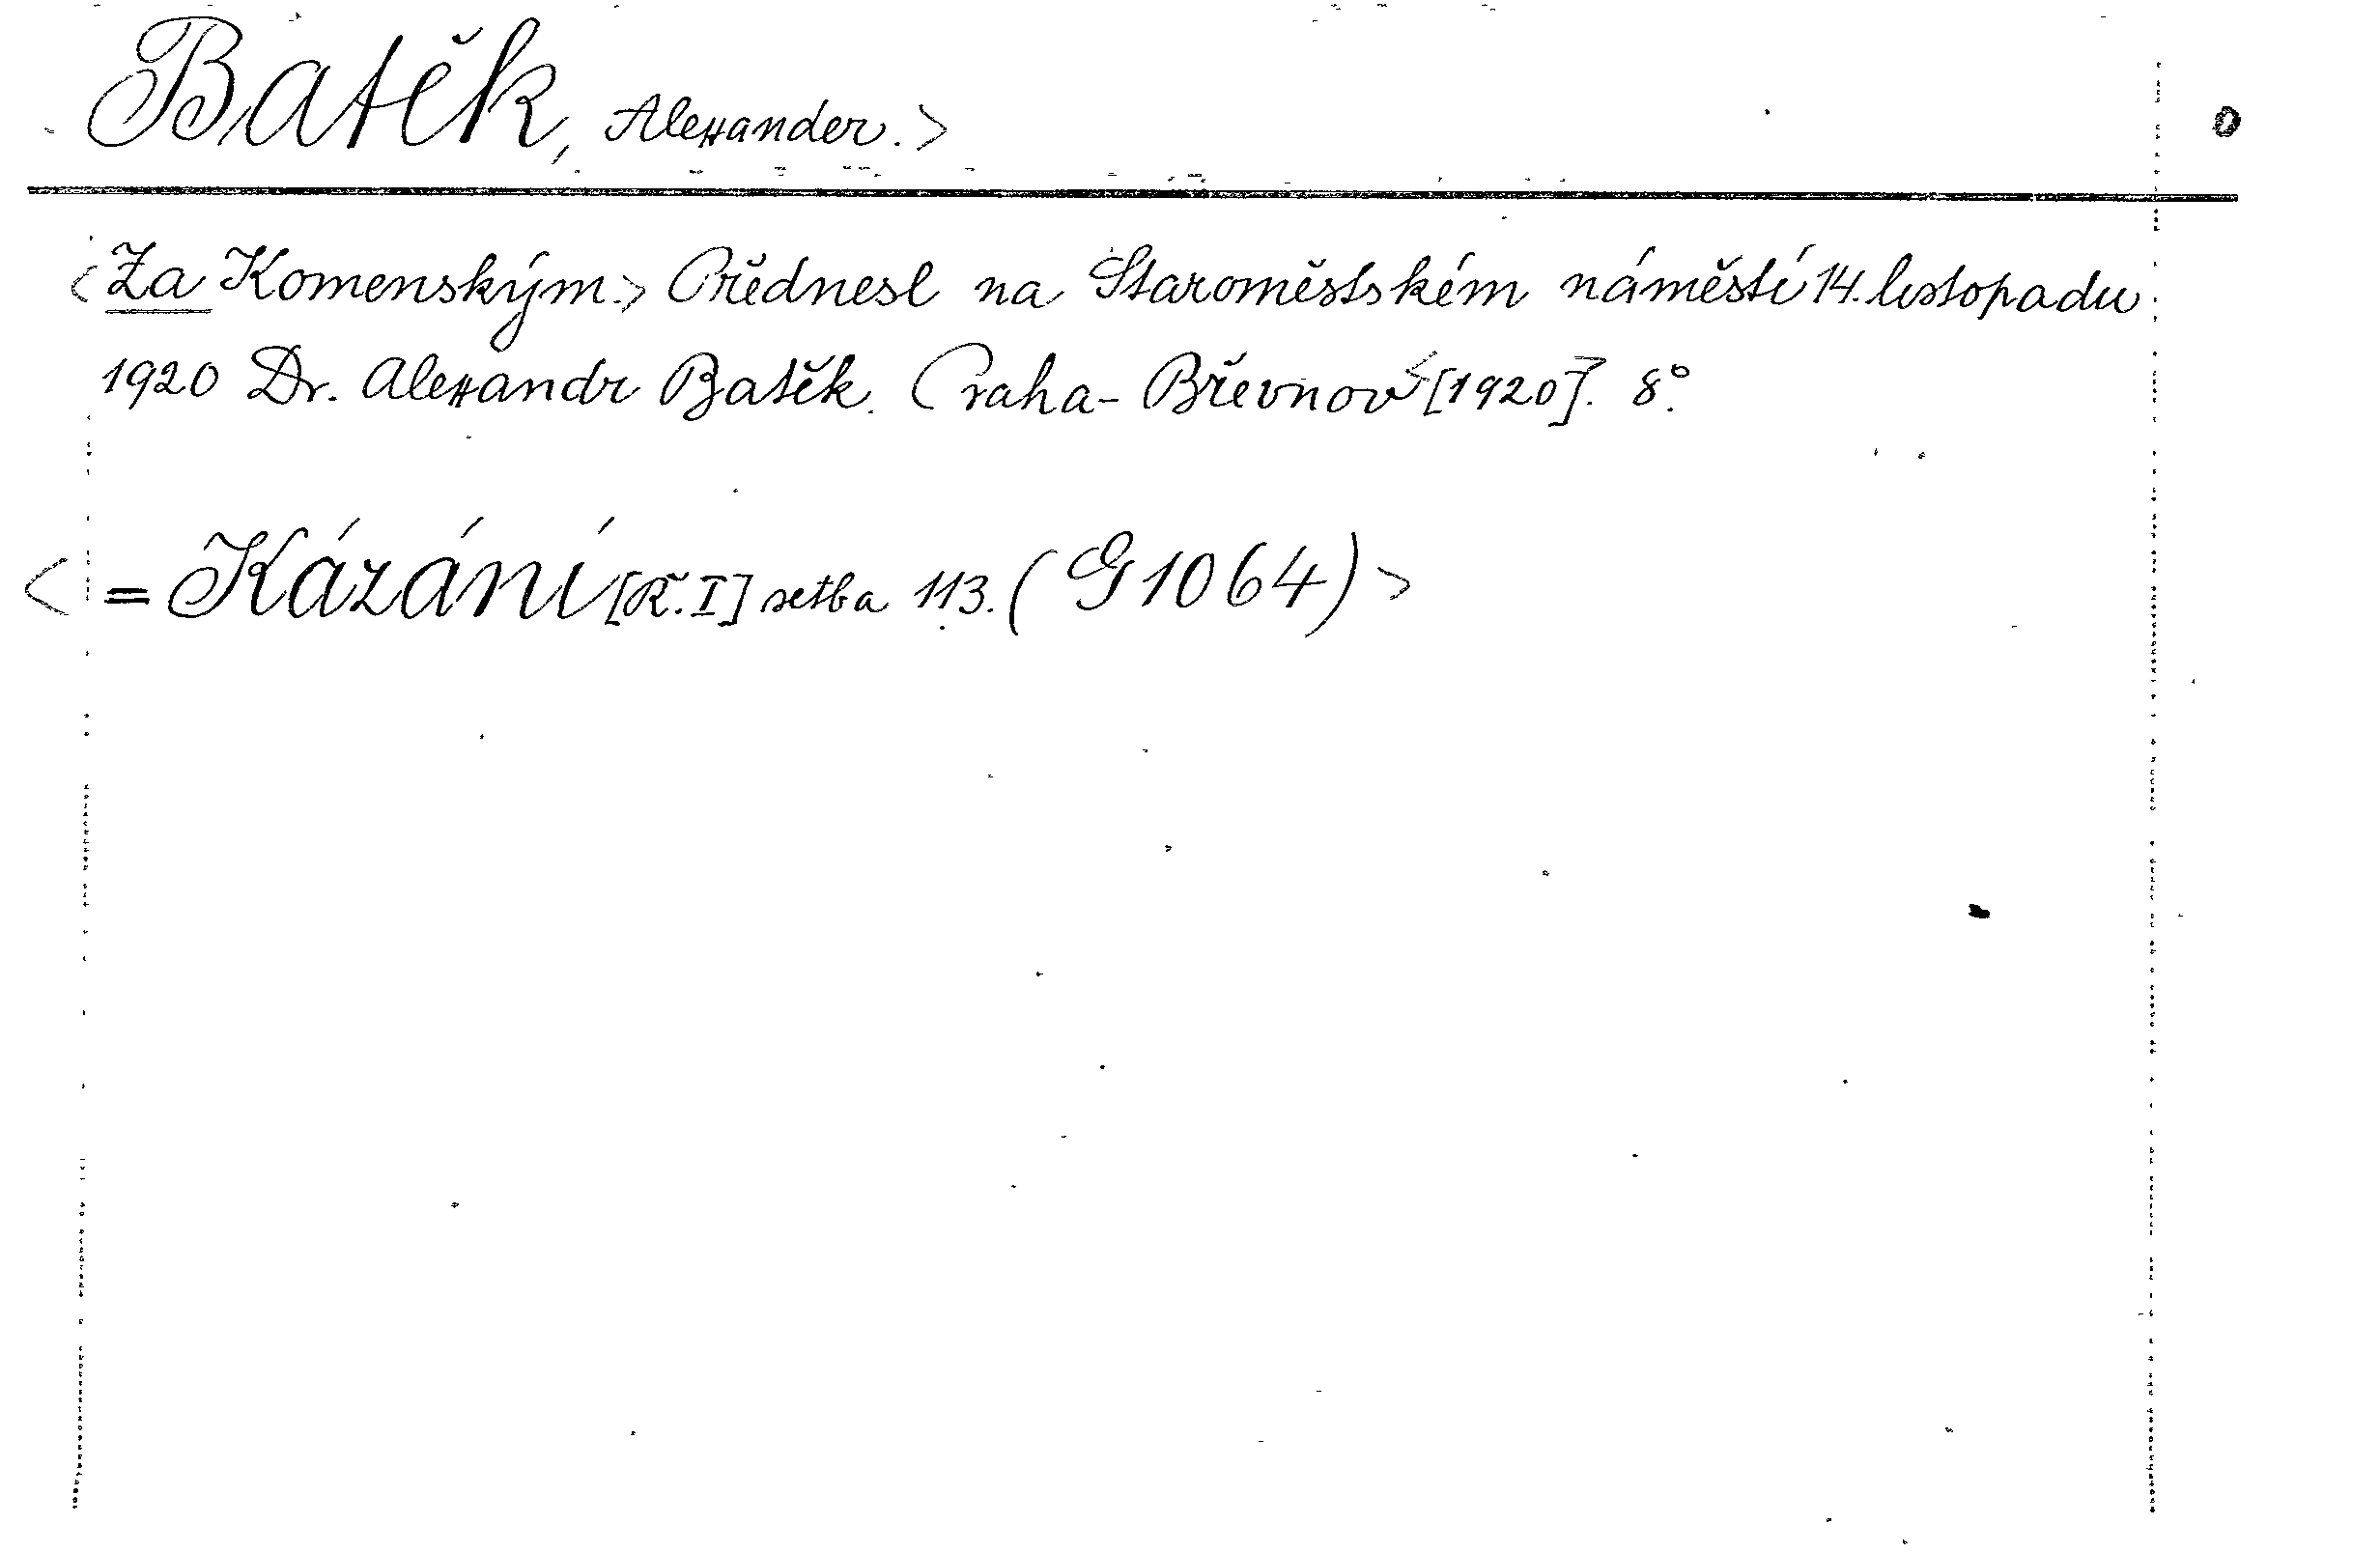 Batěk, Alexander.>
<Za Komenským.> Přědnesl na Staroměstském náměstí 14. listopadu
1920 Dr. Alexandr Batěk. Praha-Břevnov <[1920]. 8°.
<= Kázání [Ř. I] setba 113. (G 1064)>